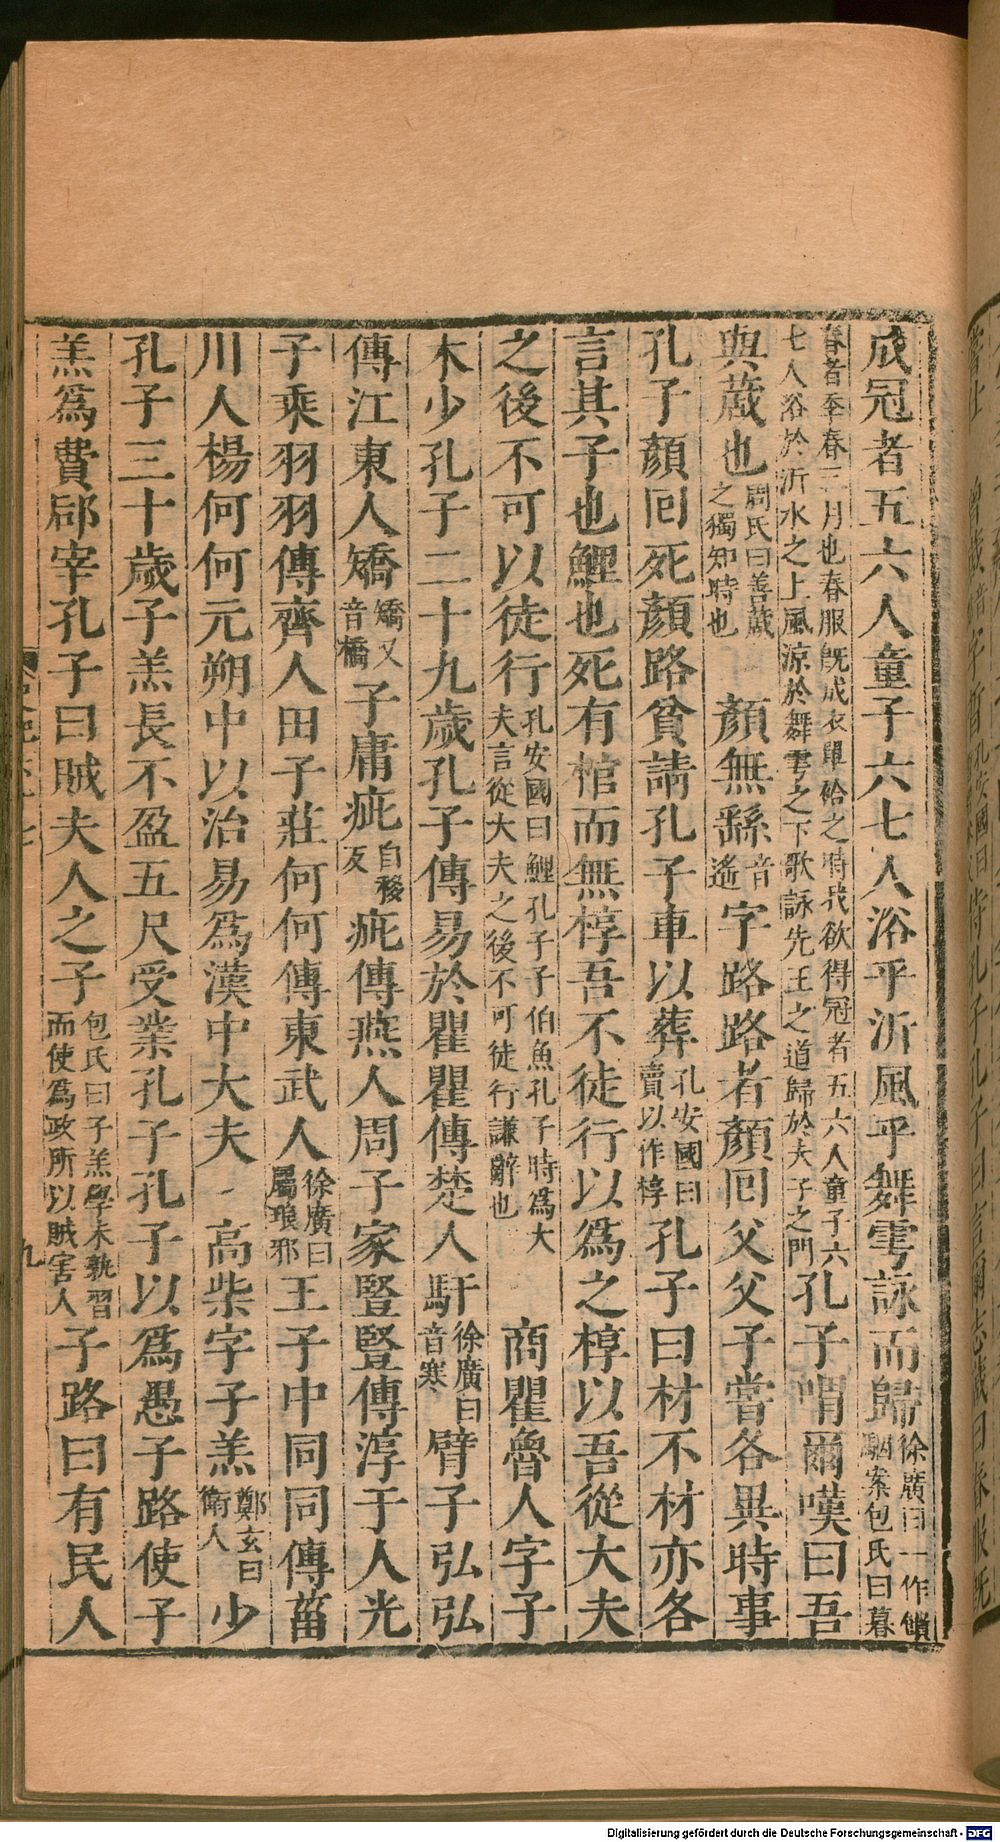 成冠者五六人童子六七人浴乎沂風乎舞雩詠而歸徐廣曰一作饋駰案包氏曰暮
春者季春三月也春服旣成衣單袷之時我欲得冠者五六人童子六七人浴於沂水之上風涼於舞雩之下歌詠先王之道歸於夫子之門孔子喟爾嘆曰吾
與蒧也周氏曰善蒧之獨知時也 顔無繇音遙字路路者顔回父父子嘗各異時事
孔子顔回死顔路貧請孔子車以葬孔安國曰賣以作椁孔子曰材不材亦各
言其子也鯉也死有棺而無椁吾不徒行以爲之椁以吾從大夫
之後不可以徒行孔安國曰鯉孔子子伯魚孔子時爲大夫言從大夫之後不可徒行謙辭也 商瞿魯人字子
木少孔子二十九歲孔子傳易於瞿瞿傳楚人馯徐廣曰音寒臂子弘弘
傳江東人矯矯又音橋子庸疵自移反疵傳燕人周子家豎豎傳淳于人光
子乘羽羽傳齊人田子莊何何傳東武人徐廣曰屬琅邪王子中同同傳菑
川人楊何何元朔中以治易爲漢中大夫 高柴字子羔鄭玄曰衛人少
孔子三十歲子羔長不盈五尺受業孔子孔子以爲愚子路使子
羔爲費郈宰孔子曰賊夫人之子包氏曰子羔學未孰習而使爲政所以賊害人子路曰有民人
九
Digitalisierung gefördert durch die Deutsche Forschungsgemeinschaft - DFG